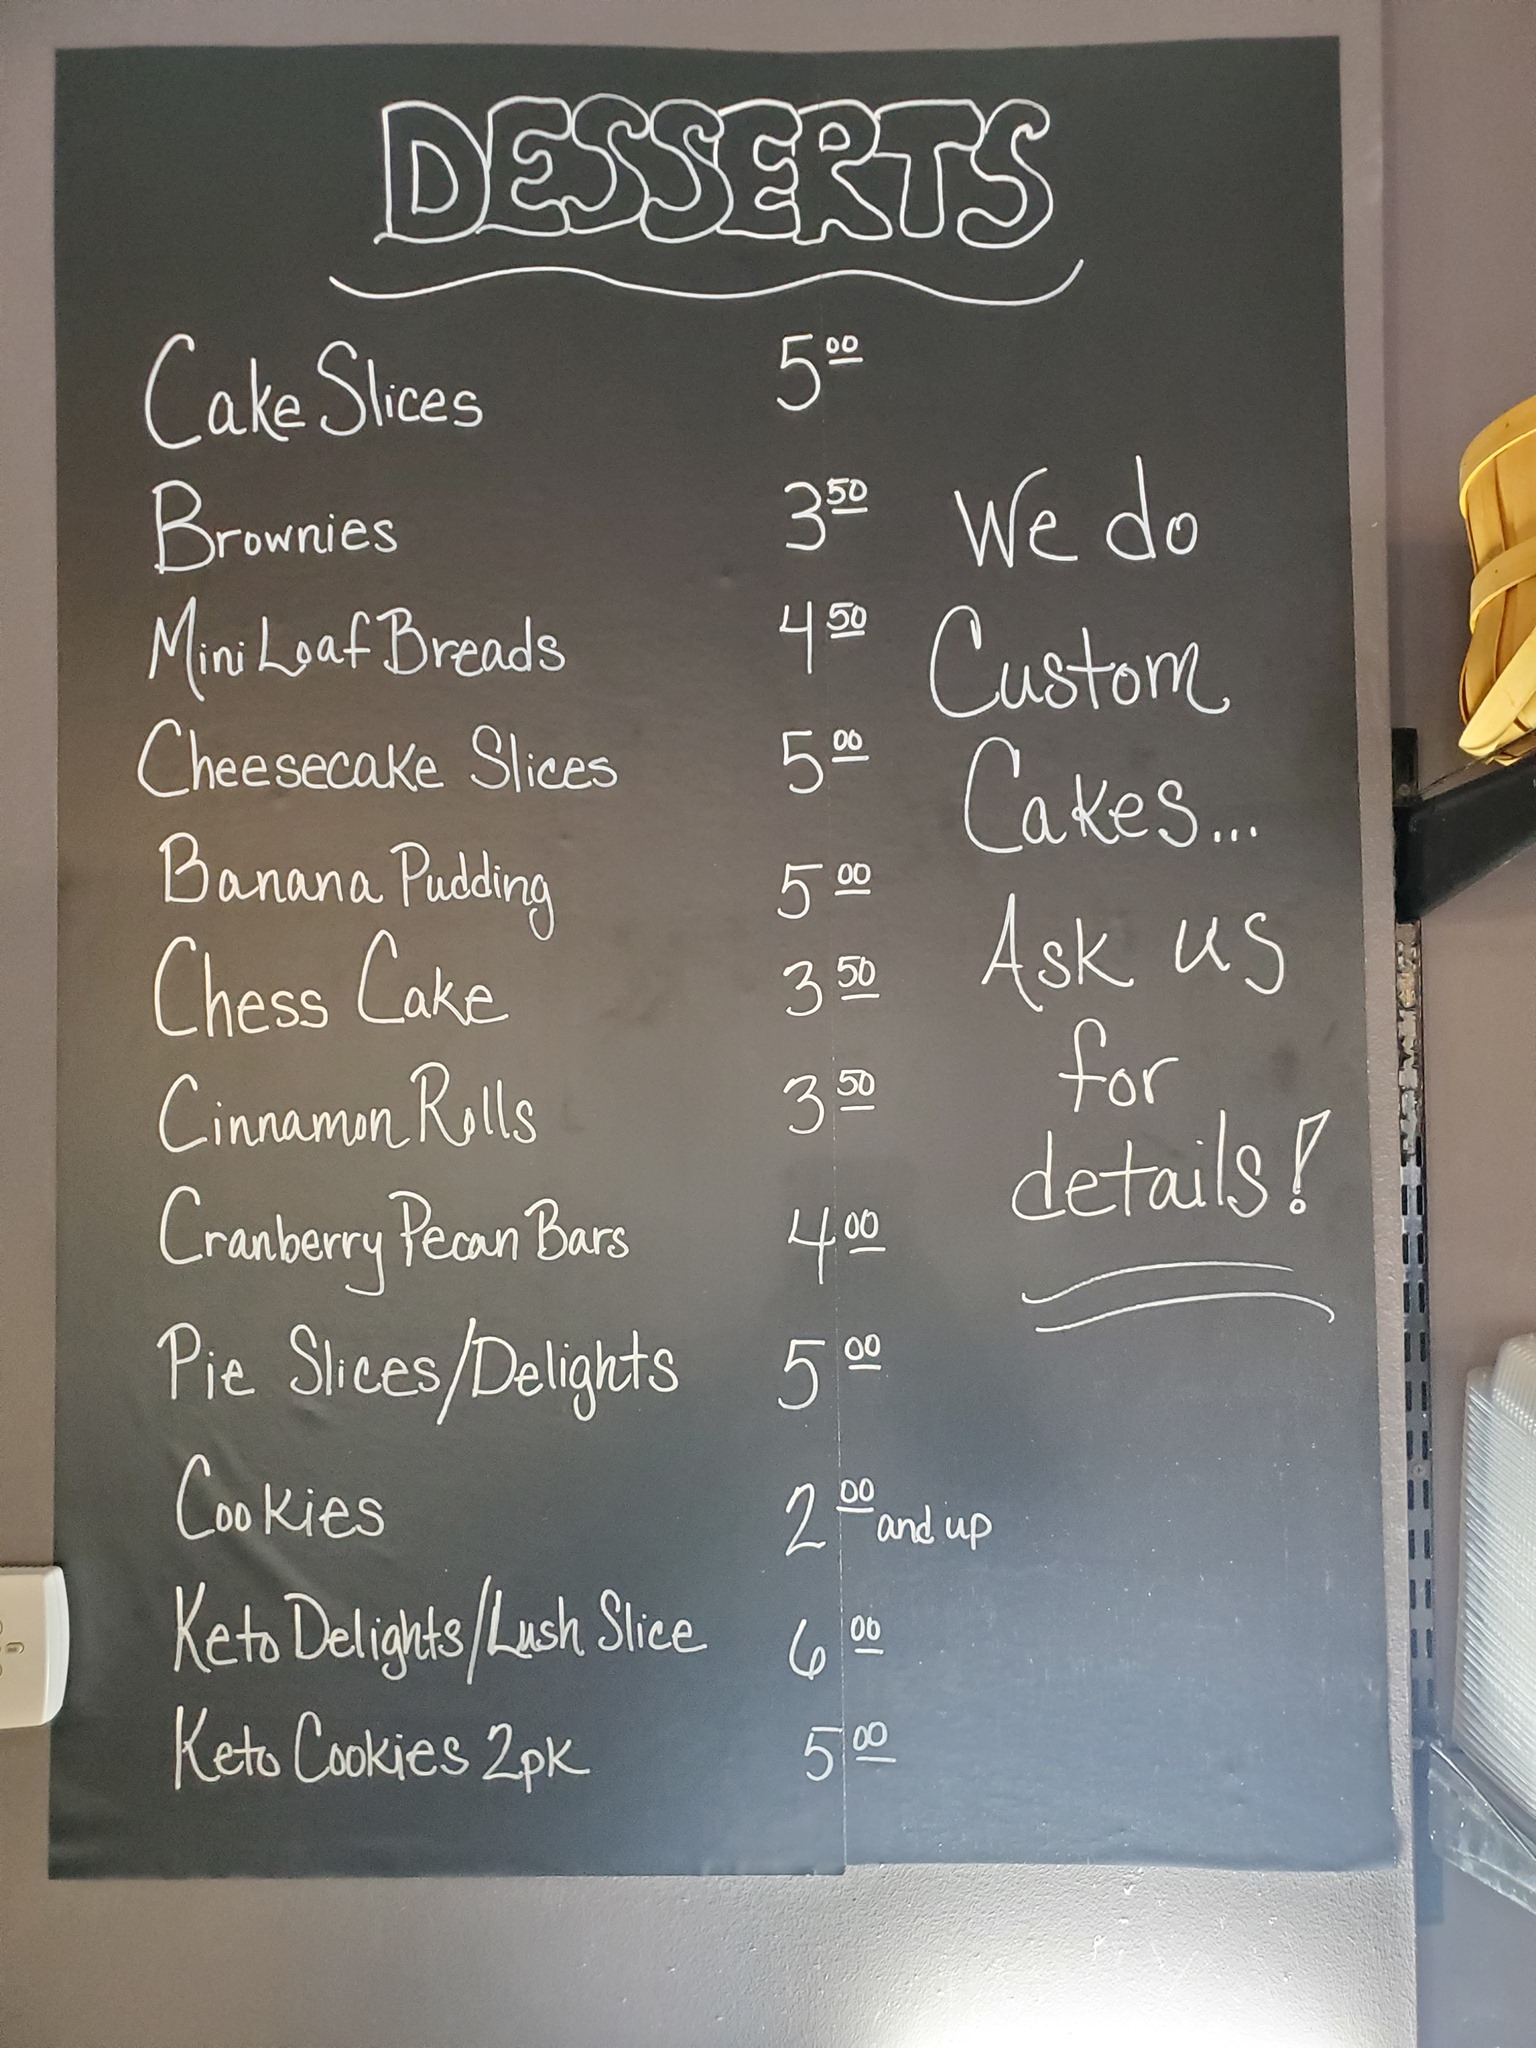 DESSERTS
Cake Slices 5.00
Brownies 3.50
Mini Loaf Breads 4.50
Cheesecake Slices 5.00
Banana Pudding 5.00
Chess Cake 3.50
Cinnamon Rolls 3.50
Cranberry Pecan Bars 4.00
Pie Slices/Delights 5.00
Cookies 2.00 and up
Keto Delights/Lush Slice 6.00
Keto Cookies 2pk 5.00
We do
Custom
Cakes...
Ask us
for
details!